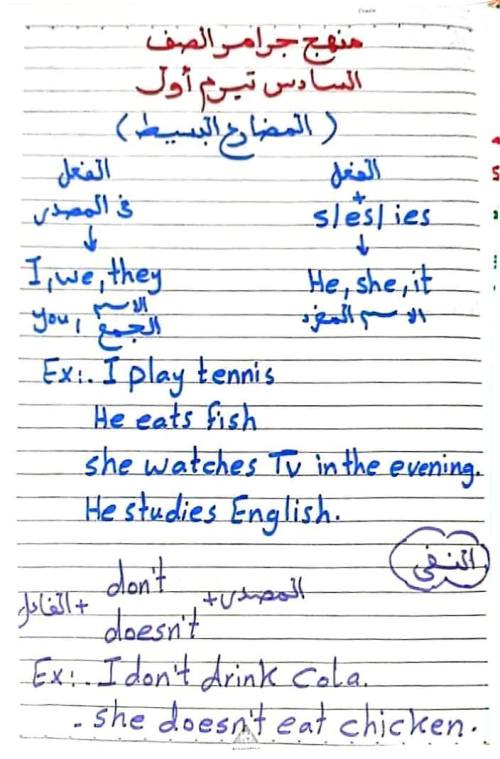 منهج جرامر الصف
السادس تيرم أول
( المضارع البسيط )
الفعل
+
s/es/ies
↓
He, she, it
الاسم المفرد
الفعل
في المصدر
↓
I, we, they
you, الاسم الجمع
Ex:. I play tennis
He eats fish
she watches Tv in the evening.
He studies English.
النفى
الفاعل + don't / doesn't + المصدر
Ex:. I don't drink cola.
. she doesn't eat chicken.